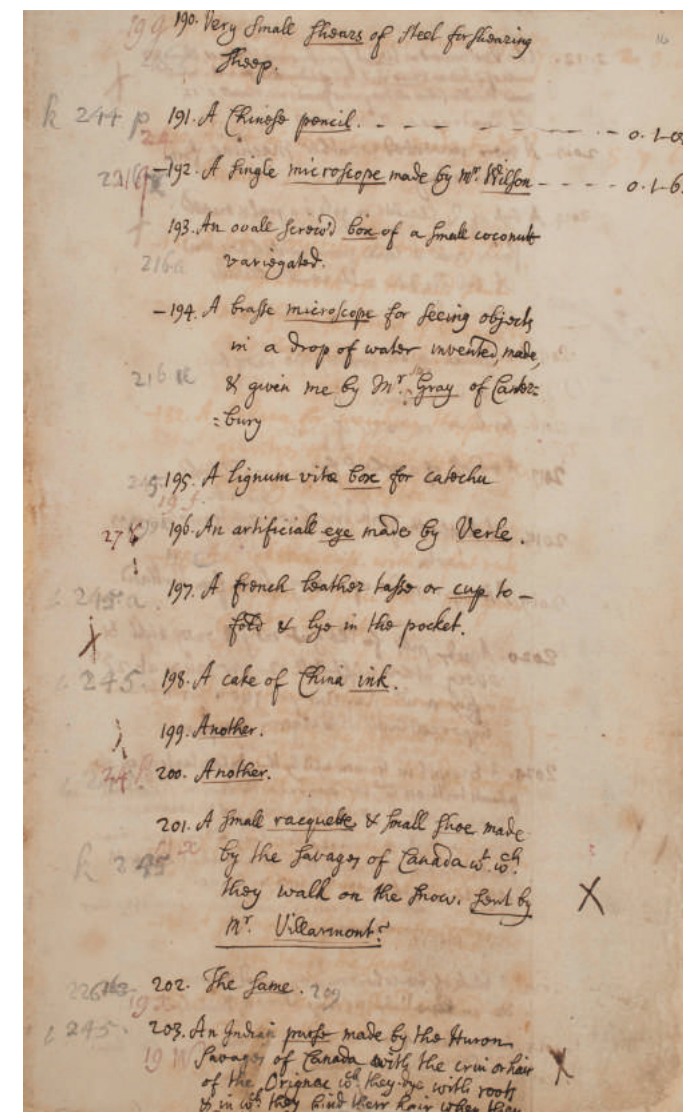 190. Very small shears of steel for shearing
sheep.
k 244 p 191. A Chinese pencil. - - - - - - 0-1-0
-192. A single microscope made by Mr. Wilson - - - - 0-1-6
193. An ovall screw'd box of a small coconutt
variegated.
216a
-194. A brasse microscope for seeing objects
in a drop of water invented, made,
& given me by Mr. Gray of Canter=
=bury
195. A lignum vitæ box for catechu
196. An artificiall eye made by Verle.
197. A french leather tasse or cup to -
fold & lye in the pocket.
245 198. A cake of China ink.
199. Another.
200. Another.
201. A small racquette & small shoe made
by the savages of Canada wt. wch.
k 245 they walk on the snow. sent by X
Mr. Villermont.
202. The same. 209
245. 203. An Indian purse made by the Huron
savages of Canada with the crin or hair X
of the Orignac wch. they dye with roots
& in wch. they bind their hair when they